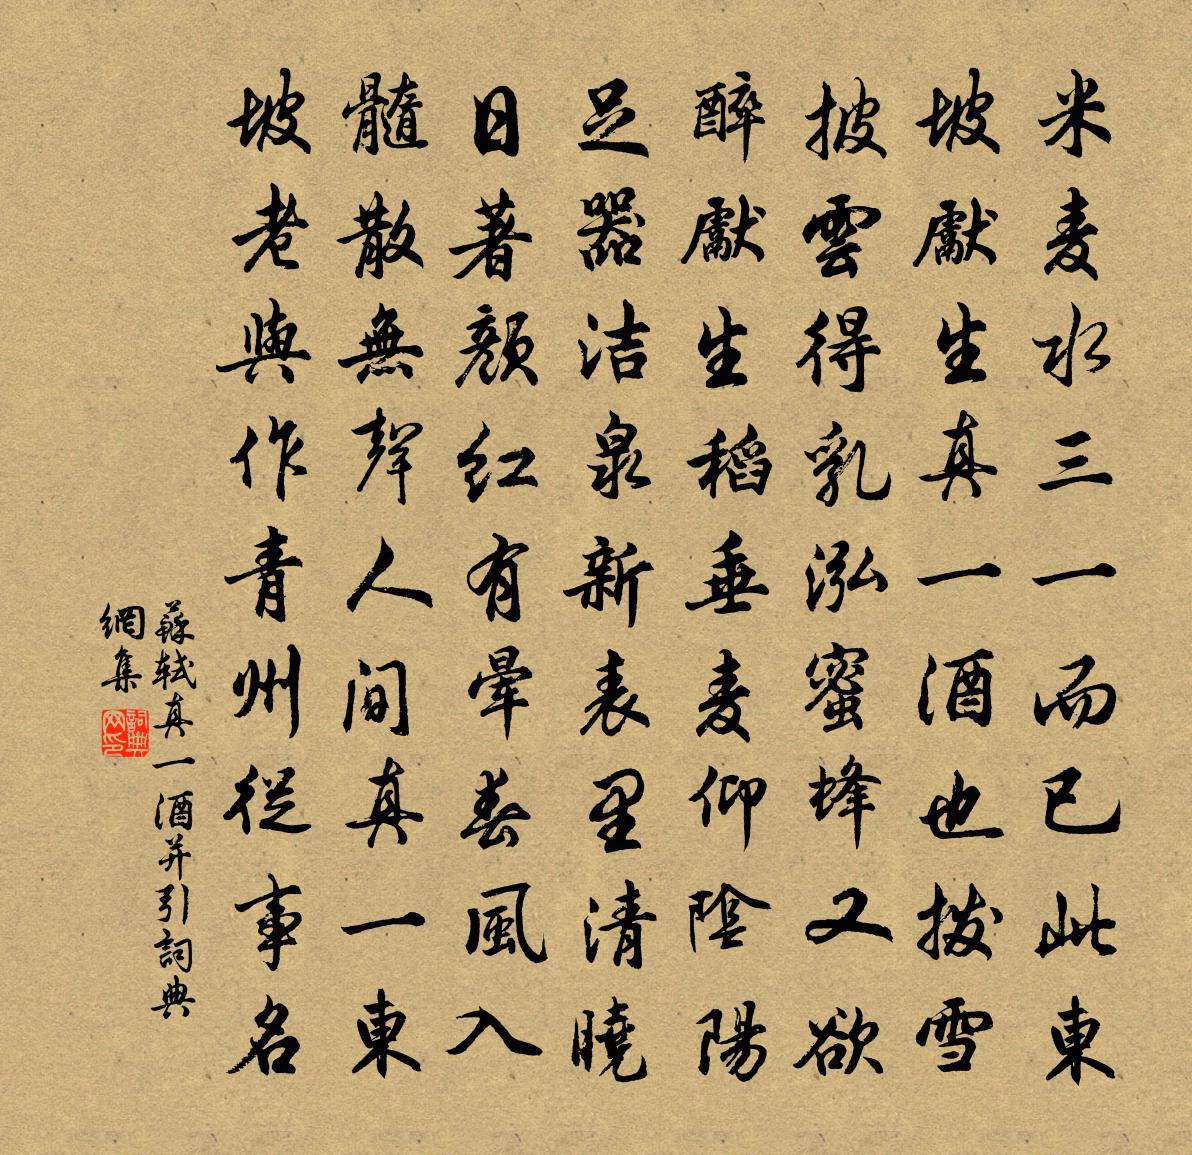 米麦水三一而已此東
坡獻生真一酒也拨雪
披雲得乳泓蜜蜂又欲
醉獻生稻垂麦仰陰陽
足器洁泉新表里清曉
日著顔红有暈春風入
髓散無聲人间真一東
坡老與作青州從事名
蘇軾真一酒并引詞典
網集
詞典网印